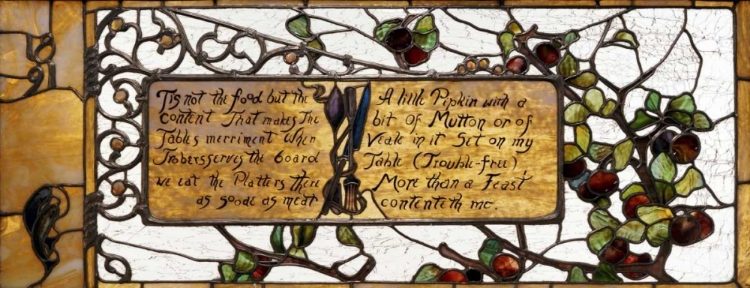 Tis not the food but the
content That makes The
Tables merriment When
serves the board
we eat the Platters there
as as meat
A little Pipkin with a
bit of Mutton or of
Veale in it Set on my
Table (Trouble-free)
More than a Feast
contenteth me.